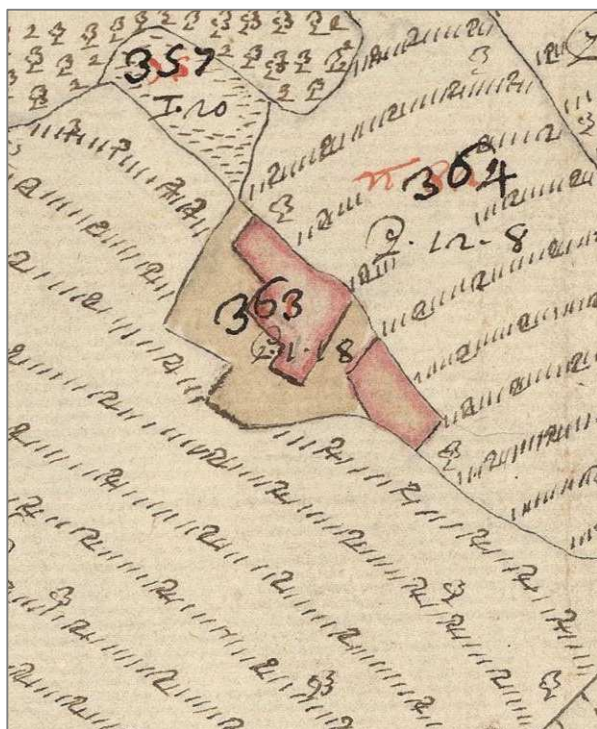 357
I·20
364
2·12·8
363
2·1·18